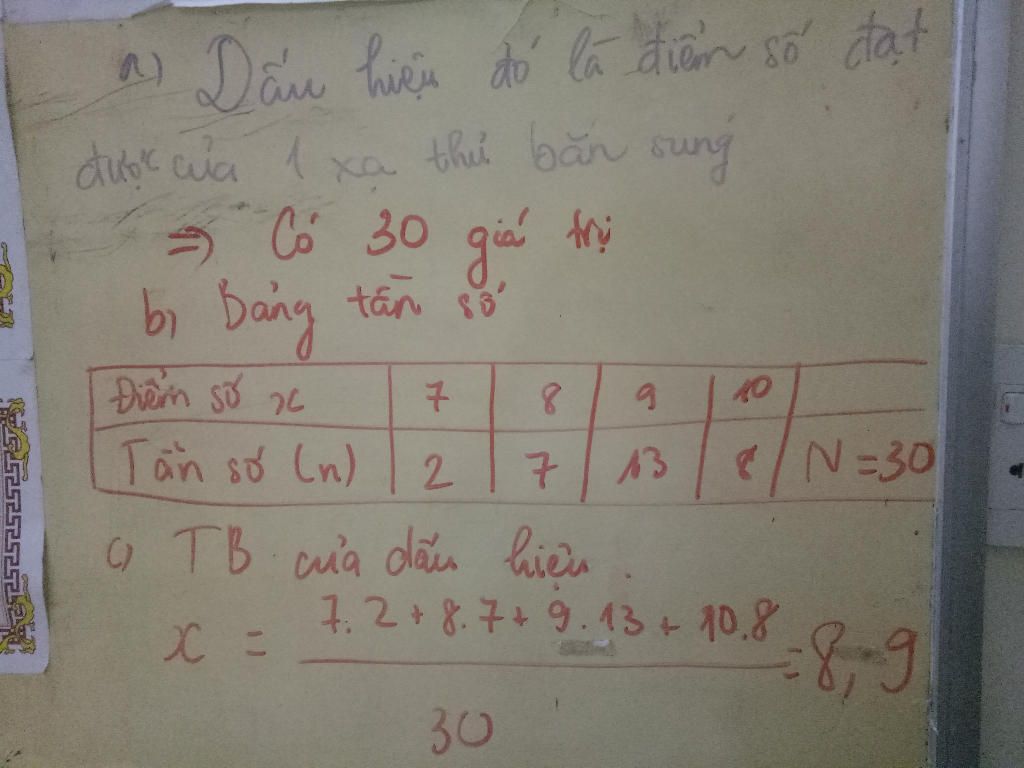 a) Dấu hiệu đó là điểm số đạt
được của 1 xạ thủ bắn sung
=> Có 30 giá trị
b) Bảng tần số
Điểm số x 7 8 9 10
Tần số (n) 2 7 13 8 N=30
c) TB của dấu hiệu.
x = 7.2+8.7+9.13+10.8 = 8,9
30